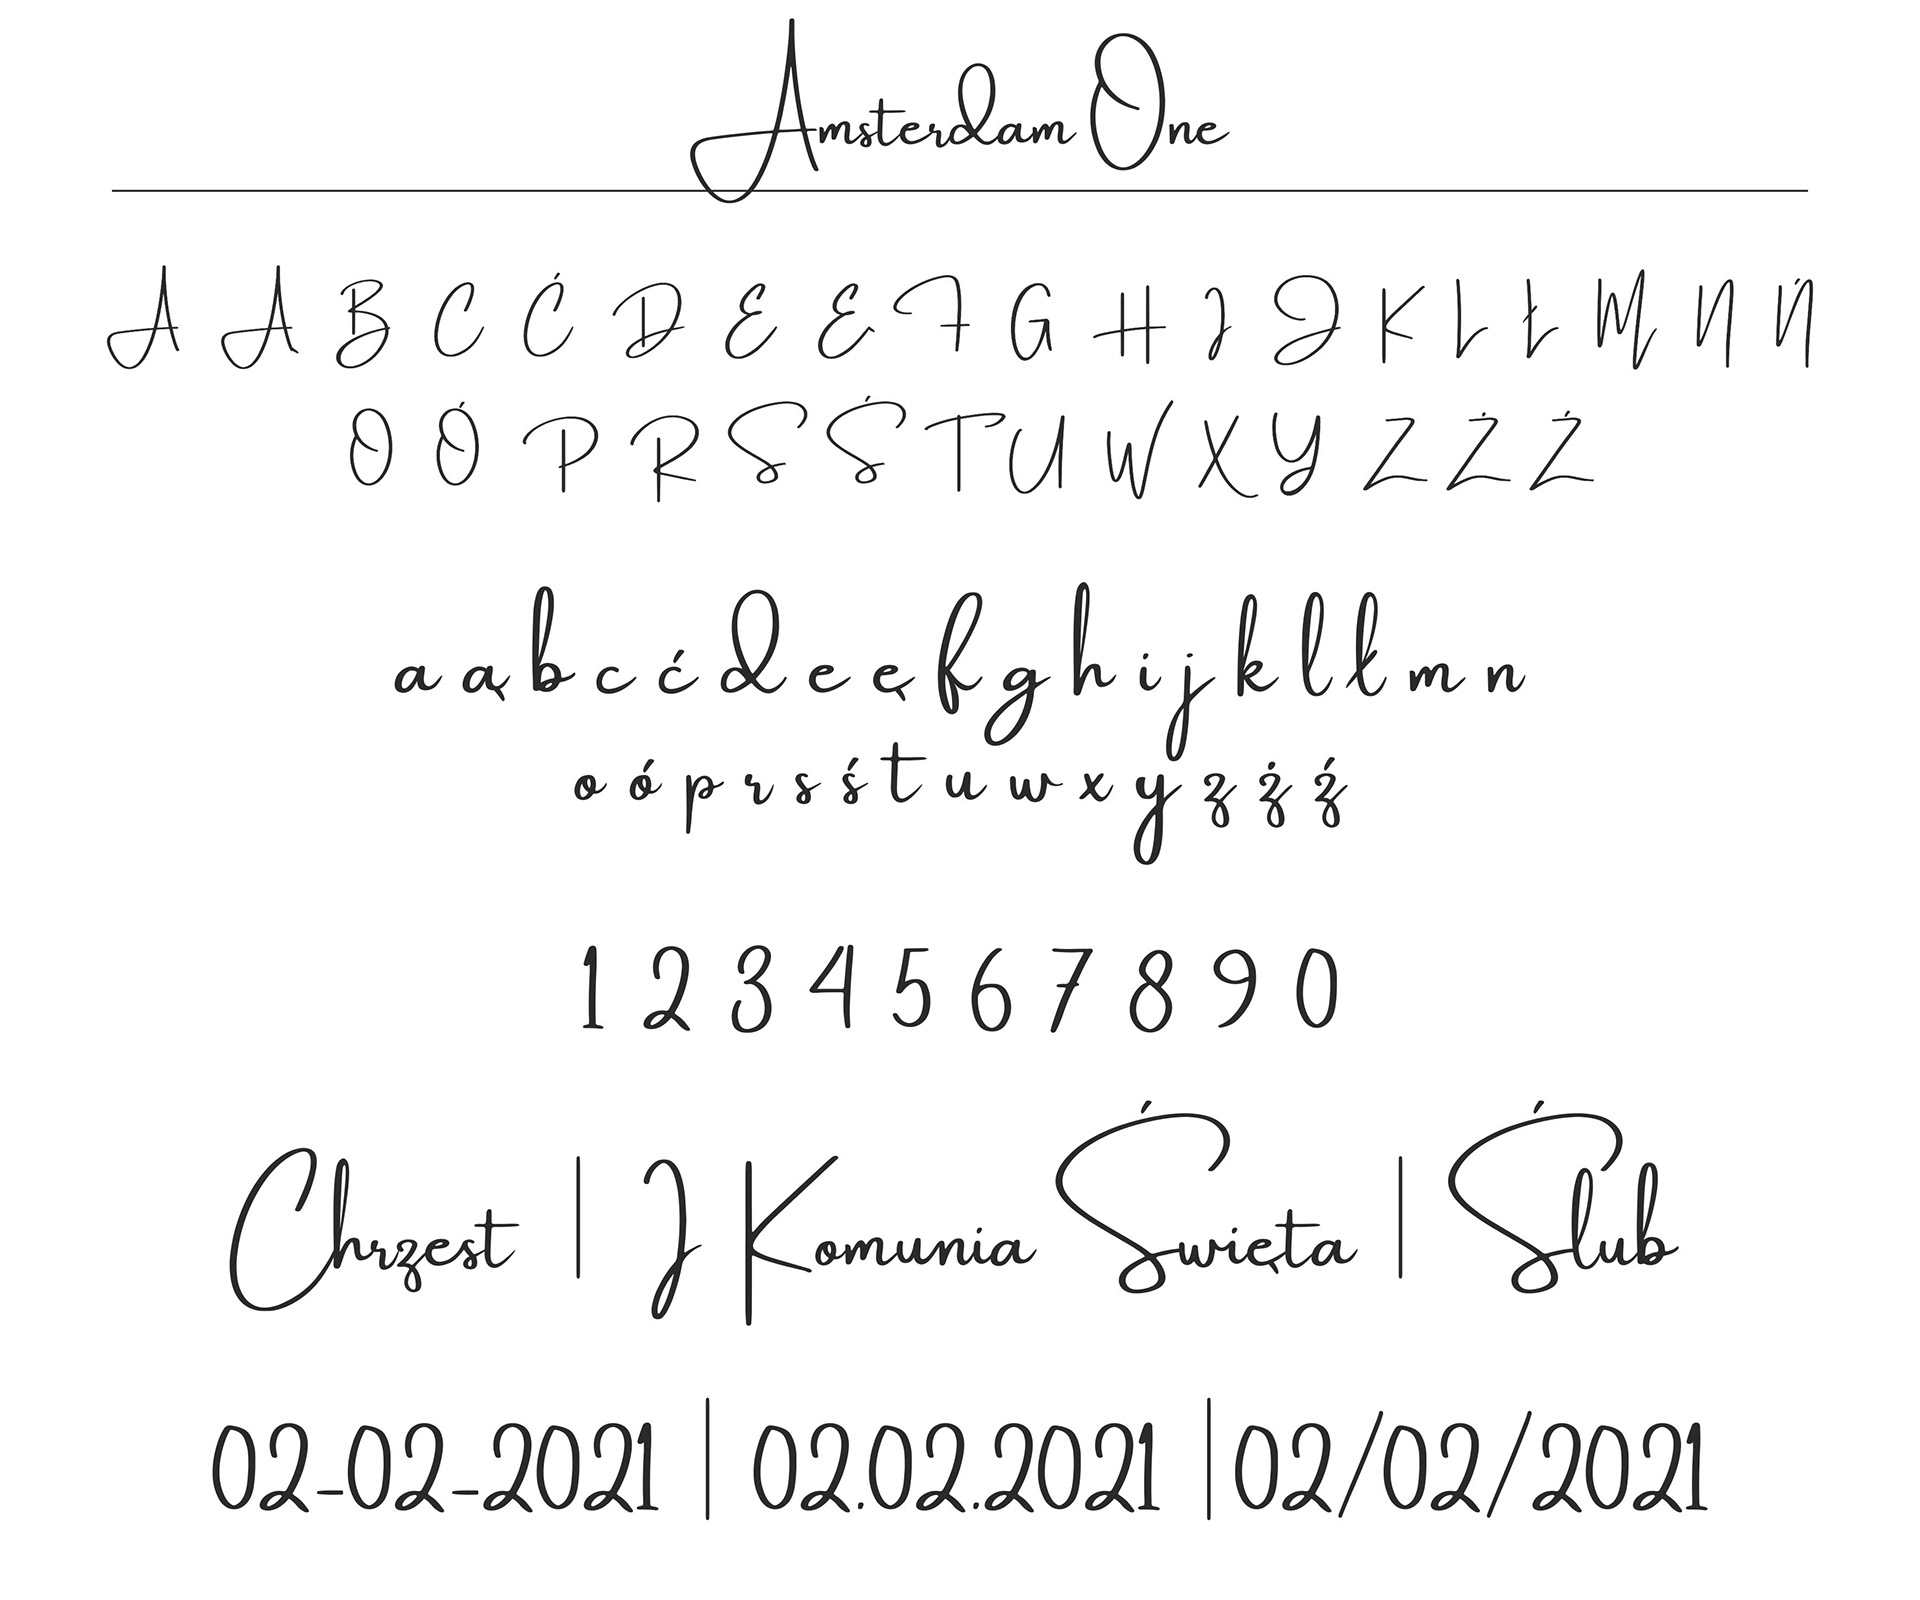 Amsterdam One
A Ą B C Ć D E Ę F G H I J K L Ł M N Ń
O Ó P R S Ś T U W X Y Z Ż Ź
a ą b c ć d e ę f g h i j k l ł m n
o ó p r s ś t u w x y z ż ź
1 2 3 4 5 6 7 8 9 0
Chrzest | I Komunia Święta | Ślub
02-02-2021 | 02.02.2021 | 02/02/2021